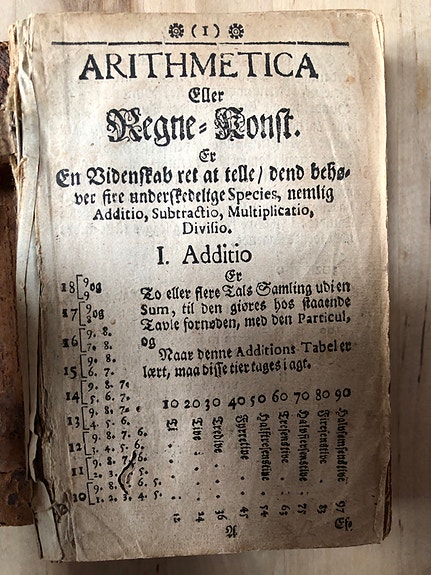 (1)
ARITHMETICA
Eller
Regne-Konst.
Er
En Videnskab ret at telle/ dend behø-
ver fire underskedelige Species, nemlig
Additio, Subtractio, Multiplicatio,
Divisio.
I. Additio
Er
To eller flere Tals Samling udi en
Sum, til den giøres hos staaende
Tavle fornøden, med den Particul,
og
Naar denne Additions-Tabel er
lært, maa disse tier tages i agt.
18 [ 9 og 9
17 [ 9 og 8
16 [ 9. 8. / 7. 8.
15 [ 9. 8. / 6. 7.
14 [ 9. 8. 7. / 5. 6. 7.
13 [ 9. 8. 7. / 4. 5. 6.
12 [ 9. 8. 7. 6. / 3. 4. 5. 6.
11 [ 9. 8. 7. 6. / 5.
10 [ 9. 8. 7. 6. 5. / 1. 2. 3. 4. 5.
10 20 30 40 50 60 70 80 90
Ti . . 12
Tive . . 24
Tredive . . 36
Fyrretive . . 45
Halftresenstive . 54
Tresenstive . . 63
Halvfiresenstive . 75
Firesenstive . . 83
Halvfemsenstive . 97
A